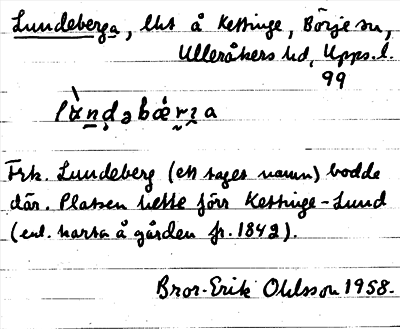 Lundeberga, lht å Kettinge, Börje sn,
Ulleråkers hd, Upps. l.
99
Frk. Lundeberg (ett taget namn) bodde
där. Platsen hette förr Kettinge-Lund
(enl. karta å gården fr. 1842).
Bror-Erik Ohlsson 1958.